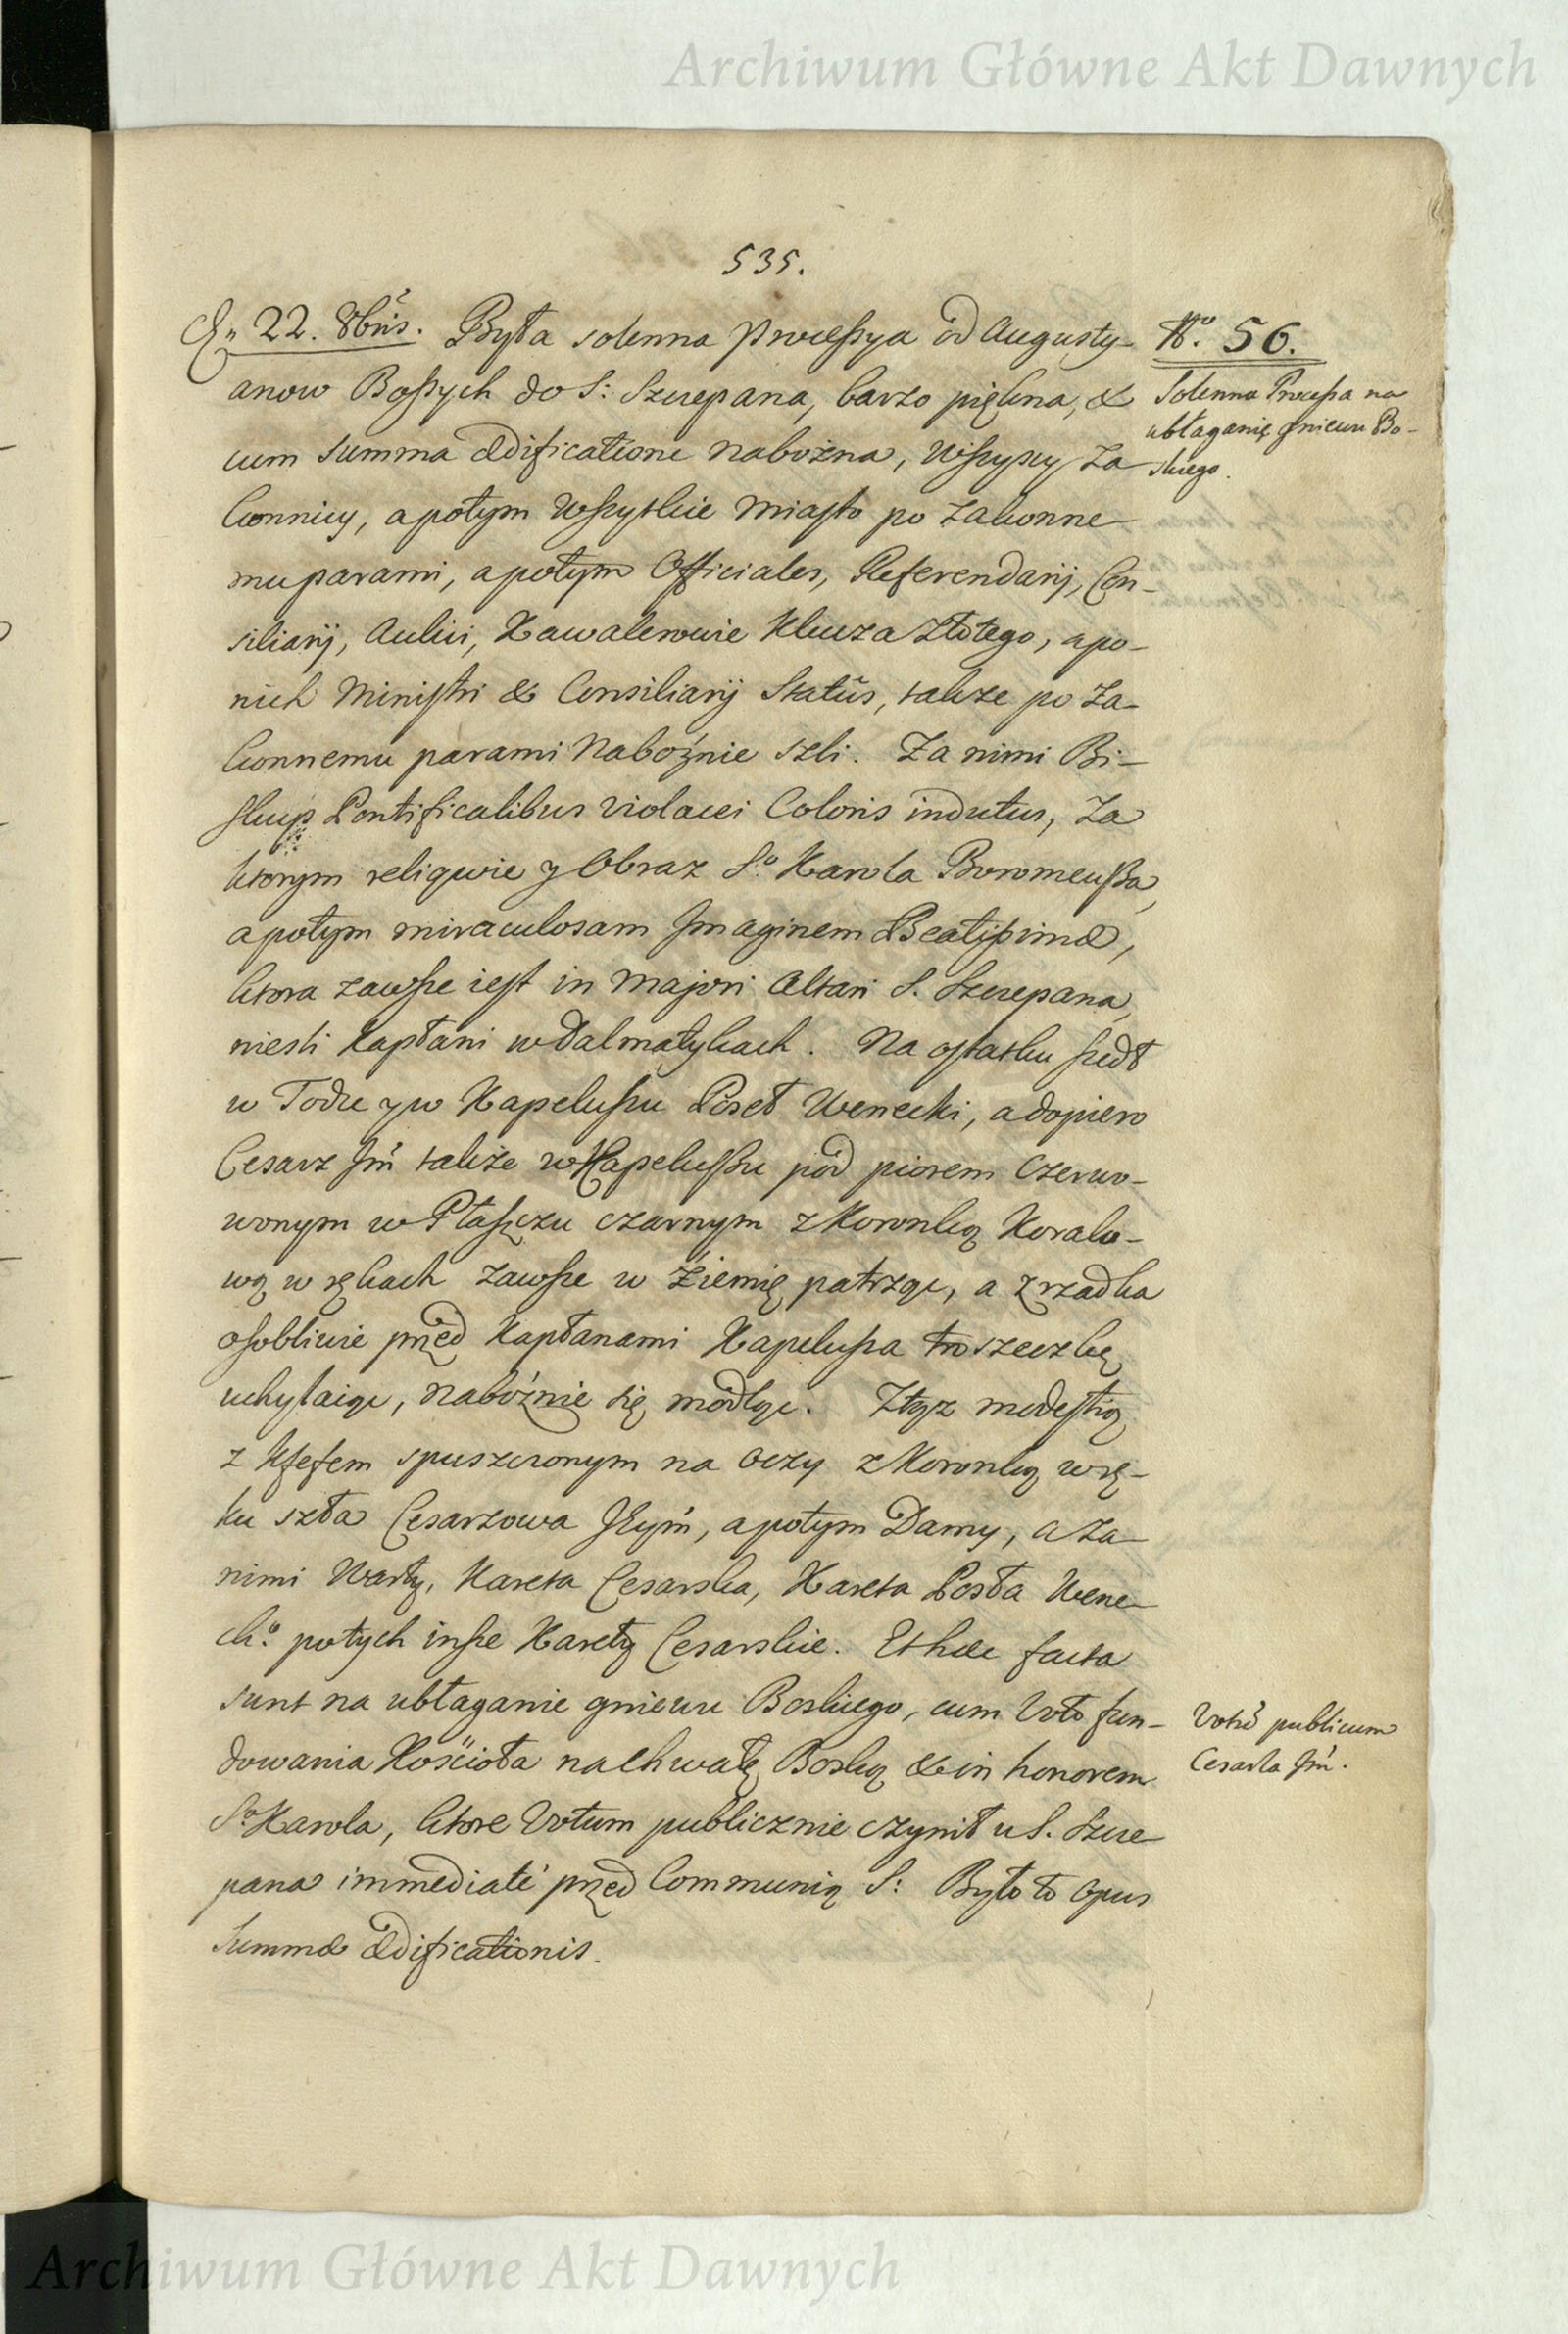 Archiwum Główne Akt Dawnych
535.
22. 8bris. Była solenna Processya od Augusty-
anow Bossych do S: Szczepana, barzo piękna, &
cum summa ædificatione nabożna, wszyscy Za
konnicy, a potym wszytkie miasto po zakonne
mu parami, a potym Officiales, Referendarij, Con-
siliarij, Aulici, Kawalerowie Klucza Złotego, a po-
nich Ministri & Consiliarij Status, także po Za-
konnemu parami Nabożnie szli. Za nimi Bi-
skup Pontificalibus violacei Coloris indutus, Za
ktorym reliqwie y Obraz So. Karola Boromeusza,
a potym miraculosam Imaginem Beatissimæ,
ktora zawsze iest in majori Altari S. Szczepana,
niesli kapłani w Dalmatykach. Na ostatku szedł
w Todze y w Kapeluszu Poseł Wenecki, a dopiero
Cesarz Jm także w Kapeluszu pod piorem Czerwo-
wonym w Płaszczu czarnym z Koronką Koralo-
wą w rękach zawsze w Ziemię patrząc, a zrzadka
osobliwie przed Kapłanami Kapelusza troszeczkę
uchylaiąc, nabożnie się modląc. Ztąż modestią
z Kfefem spuszczonym na oczy z Koronką w rę-
ku szła Cesarzowa Jeym, a potym Damy, a za
nimi Warty, Kareta Cesarska, Kareta Posła Wene-
cko. po tych insze Karety Cesarskie. Et hæc facta
sunt na ubłaganie gniewu Boskiego, cum Voto fun-
dowania Kościoła na Chwałę Boską & in honorem
So Karola, ktore Votum publicznie czynił u S. Szcze
pana immediaté przed Communią S: Było to Opus
Summæ ædificationis.
No. 56.
Solenna Processa na
ubłaganię gniewu Bo-
skiego.
Votum publicum
Cesarza Jm.
Archiwum Główne Akt Dawnych